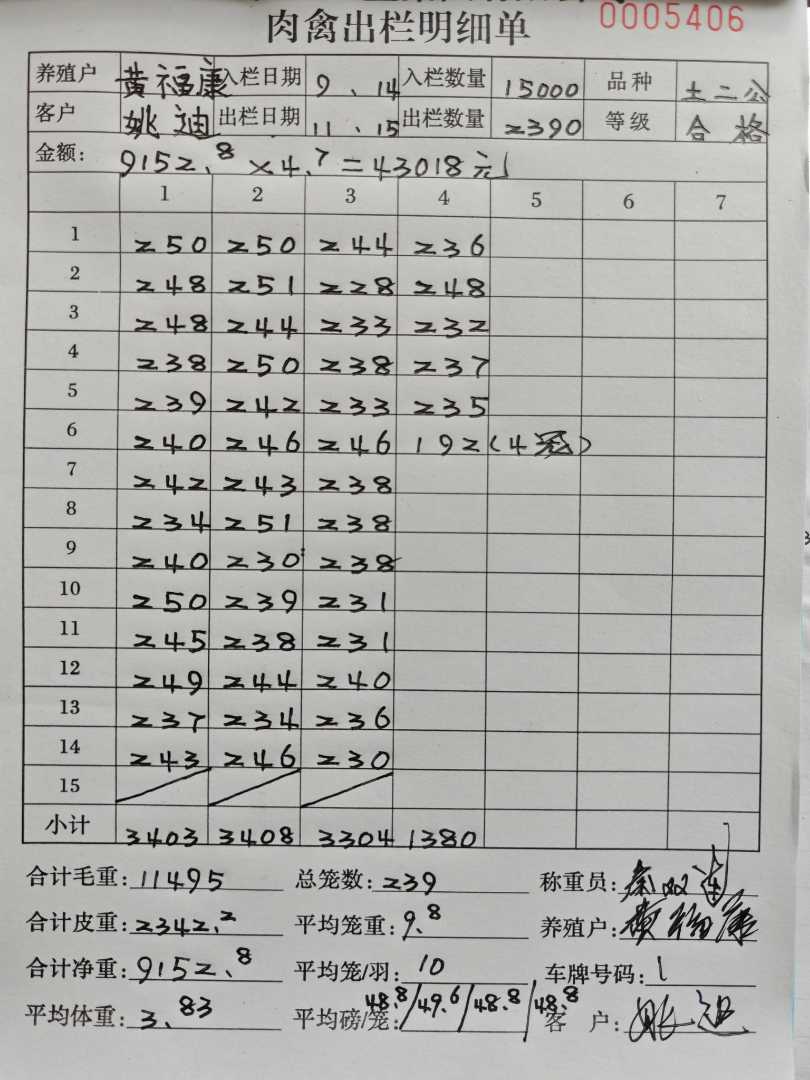 肉禽出栏明细单 0005406
养殖户 黄福康 入栏日期 9、14 入栏数量 15000 品种 土二公
客户 姚迪 出栏日期 11、15 出栏数量 2390 等级 合格
金额: 9152.8×4.7=43018元
1 2 3 4 5 6 7
1 250 250 244 236
2 248 251 228 248
3 248 244 233 232
4 238 250 238 237
5 239 242 233 235
6 240 246 246 192(4笼)
7 242 243 238
8 234 251 238
9 240 230 238
10 250 239 231
11 245 238 231
12 249 244 240
13 237 234 236
14 243 246 230
15
小计 3403 3408 3304 1380
合计毛重: 11495 总笼数: 239 称重员:
合计皮重: 2342.2 平均笼重: 9.8 养殖户: 黄福康
合计净重: 9152.8 平均笼/羽: 10 车牌号码: 1
平均体重: 3.83 平均磅/笼: 48.8/49.6/48.8/48.8 客户: 姚迪